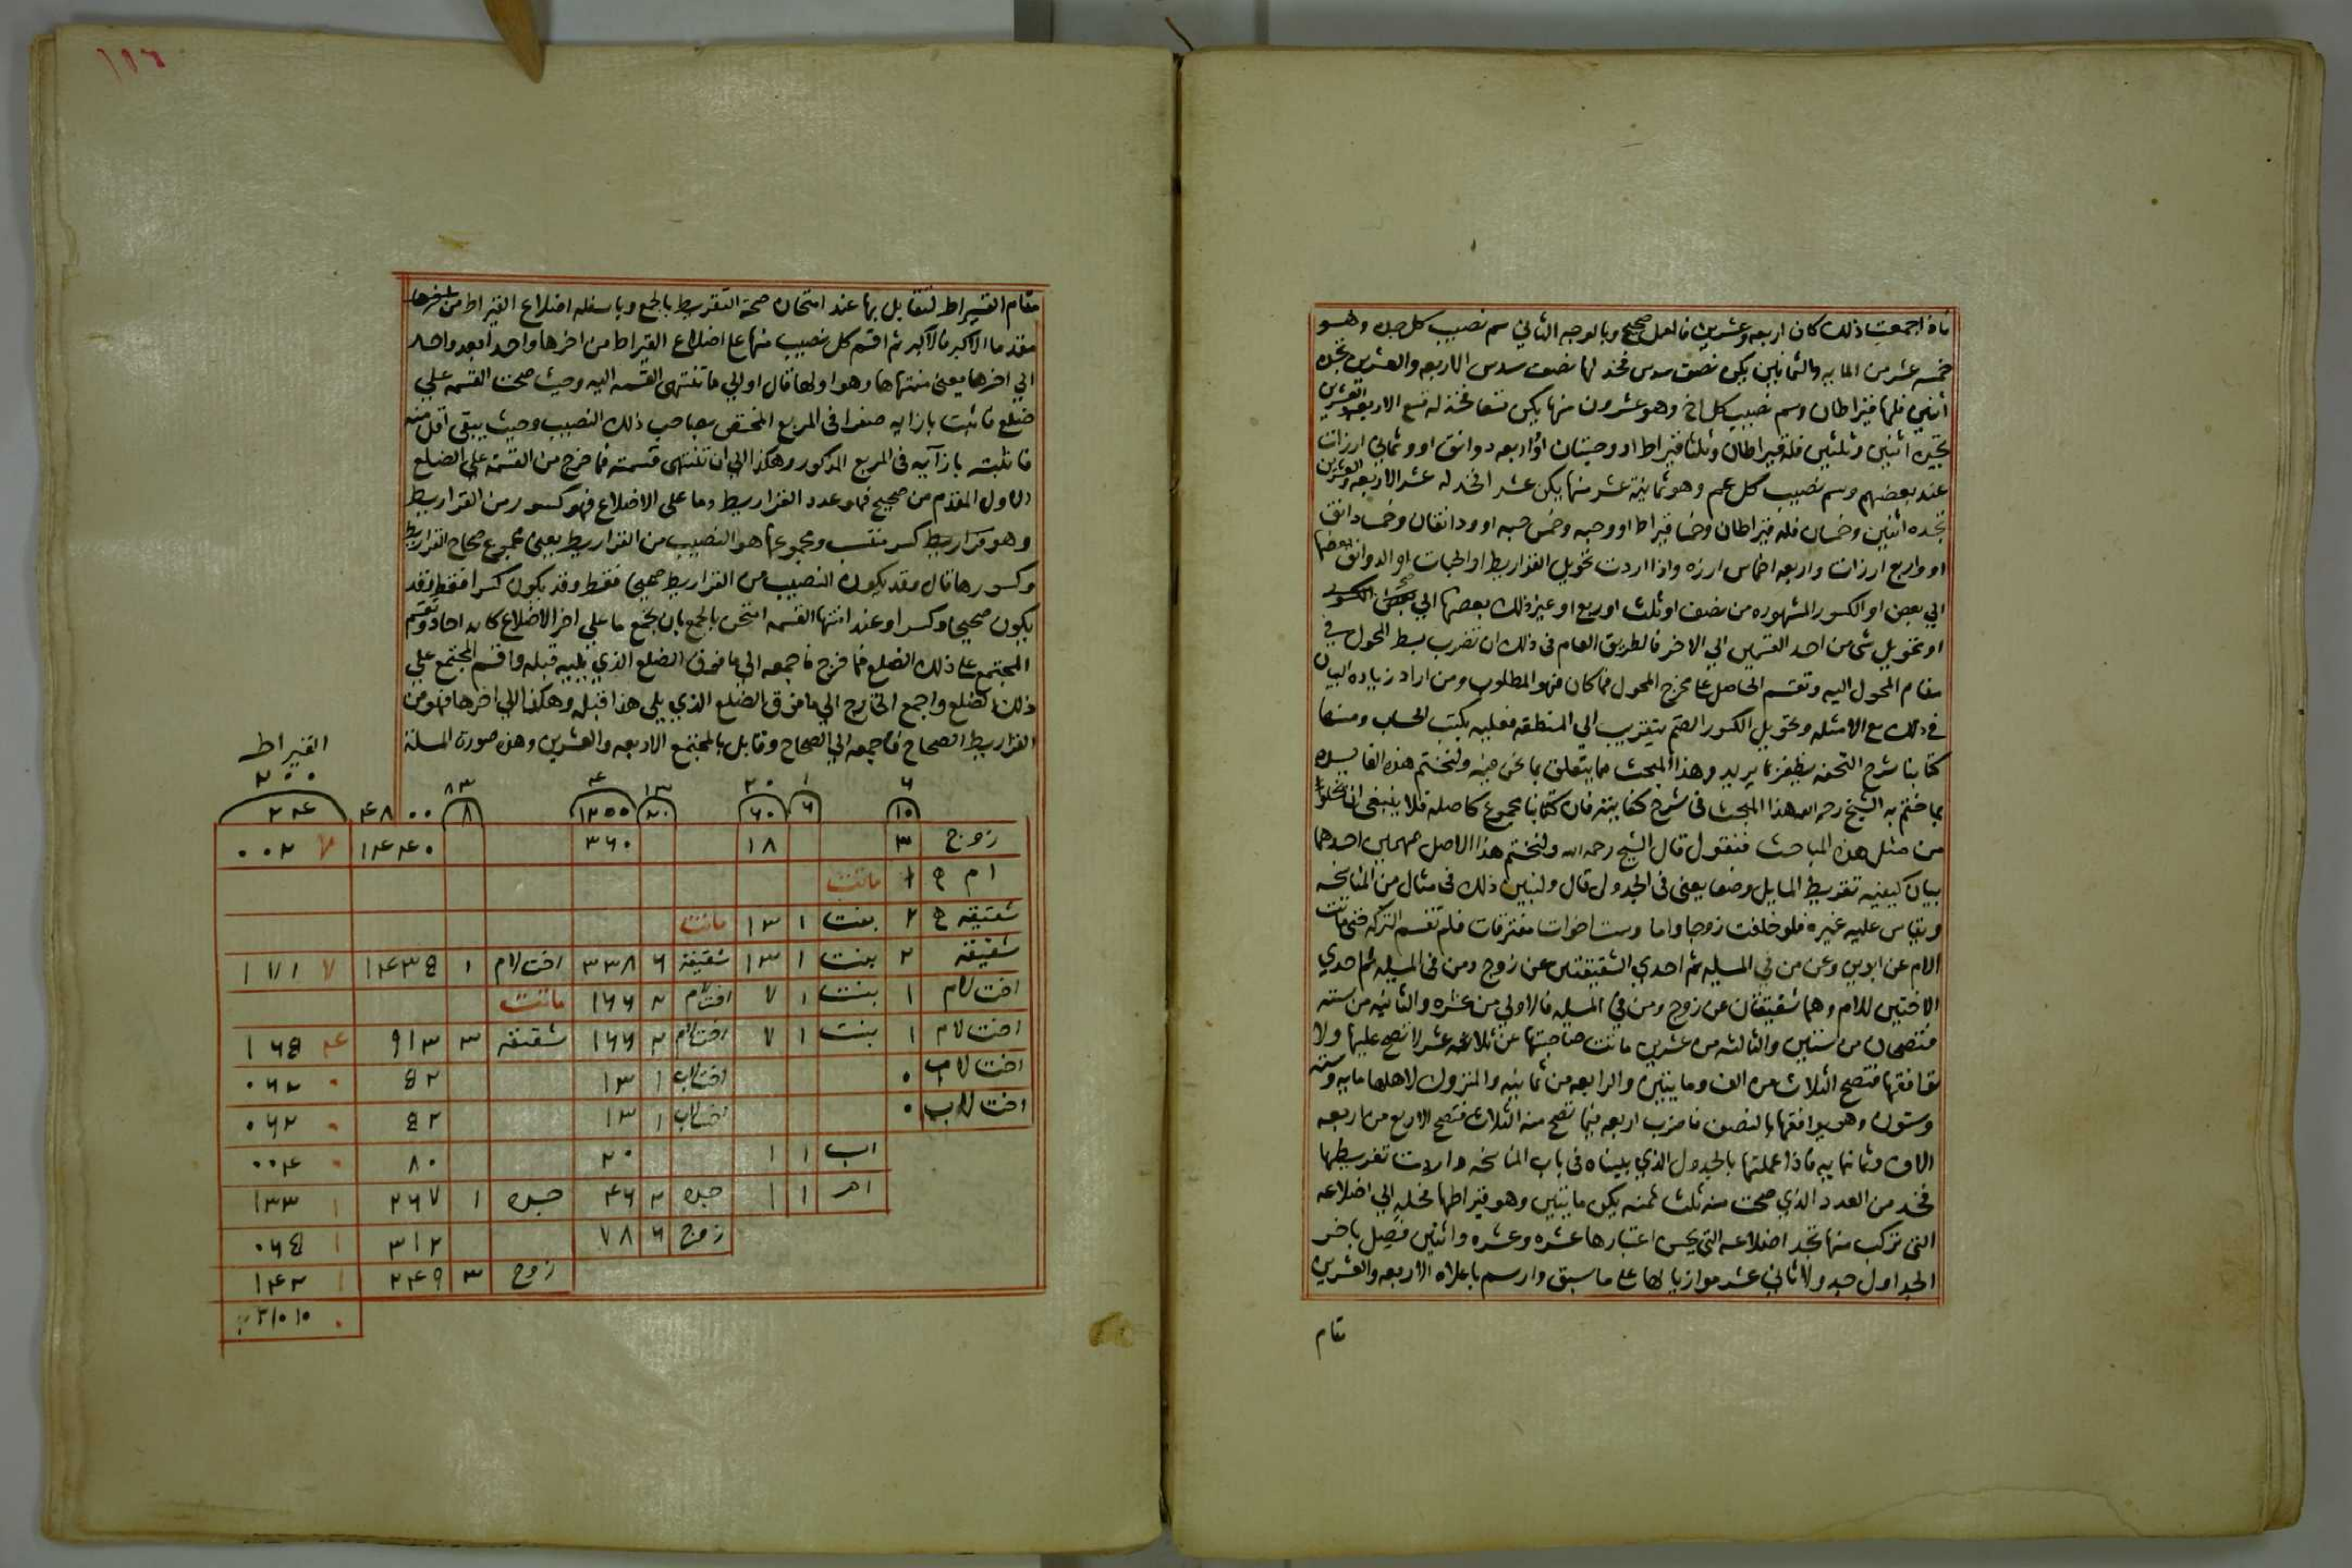 فاذا جمعت ذلك كان اربعه وعشرين فالعمل صحيح وبالوجه الثاني سم نصيب كل جده وهو
خمسه عشر من المايه والثمانين يكن نصف سدس فخذ لها نصف سدس الاربعه والعشرين تجده
اثنين فلها قيراطان وسم نصيب كل اخ وهو عشرون منها يكن تسعا فخذ له تسع الاربعه والعشرين
تجده اثنين وثلثين فله قيراطان وثلثا قيراط او وحبتان او واربعه دوانق او وثماني ارزات
عند بعضهم وسم نصيب كل عم وهو ثمانية عشر منها يكن عشرا فخذ له عشر الاربعه والعشرين
تجده اثنين وخمسان فله قيراطان وخمسا قيراط او وحبه وخمس حبه او ودانقان وخمسا دانق
او واربع ارزات واربعه اخماس ارزه واذا اردت تحويل القراريط او الحبات او الدوانق بعضها
الي بعض او الكسور المشهوره من نصف او ثلث او ربع او غير ذلك بعضها الي بعض
او تحويل شى من احد القسمين الي الاخر فالطريق العام فى ذلك ان تضرب بسط المحول في
مقام المحول اليه وتقسم الحاصل على مخرج المحول فما كان فهو المطلوب ومن اراد زياده البيان
في ذلك مع الامثله وتحويل الكسور الصم بتقريب الي المنطقه فعليه بكتب الحساب ومنها
كتابنا شرح التحفه يظفر بما يريد وهذا المبحث مما يتعلق بما نحن فيه ولنختم هذه الفايده
بما ختم به الشيخ رحمه الله هذا المبحث فى شرح كفايته فان كتابنا مجموع كاصله فلا ينبغى ان يخلوا
من مثل هذه المباحث فنقول قال الشيخ رحمه الله ولنختم هذا الاصل بمهمين احدهما
بيان كيفيه تقريط المسايل وضعا يعنى فى الجدول قال ولنبين ذلك فى مثال من المناسخه
ويقاس عليه غيره فلو خلفت زوجا واما وست اخوات مفترقات فلم تقسم التركه حتى ماتت
الام عن ابوين وعن من في المسيله ثم احدي الشقيقتين عن زوج ومن فى المسيله ثم احدي
الاختين للام وهما شقيقتان عن زوج ومن في المسيله فالاولي من عشره والثانيه من سته
فتصحان من ستين والثالثه من عشرين ماتت صاحبتها عن ثلاثه عشر لا تصح عليها ولا
توافقها فتصح الثلاث من الف وماتيين والرابعه من ثمانيه والمنزول لاهلها مايه وسته
وستون وهو يوافقها بالنصف فاضرب اربعه فيما تصح منه الثلاث فتصح الاربع من اربعه
الاف وثمانمايه فاذا عملتها بالجدول الذي بيناه فى باب المناسخه واردت تقريطها
فخذ من العدد الذي صحت منه ثلث ثمنه يكن مايتين وهو قيراطها فحله الي اضلاعه
التى تركب منها تجد اضلاعه التي يحسن اعتبارها عشره وعشره واثنين فصل باخر
الجداول جدولا ثاني عشر موازيا لها على ما سبق وارسم باعلاه الاربعه والعشرين
مقام
١٩٦
مقام القيراط لتقابل بها عند امتحان صحة التقريط بالجمع وباسفله اضلاع القيراط من اخرها
مقدما الاكبر فالاكبر ثم اقسم كل نصيب منها على اضلاع القيراط من اخرها واحدا بعد واحد
الي اخرها يعنى منتهاها وهو اولها قال او الي ما تنتهى القسمه اليه وحيث صحت القسمه علي
ضلع فاثبت بازايه صفرا فى المربع المختص بصاحب ذلك النصيب وحيث يبقى اقل منه
فاثبته بازايه فى المربع المذكور وهكذا الي ان تنتهى قسمته فما خرج من القسمة على الضلع
الاول المقدم من صحيح فهو عدد القراريط وما على الاضلاع فهو كسور من القراريط
وهو قراريط كسر منتسب ومجموعها هو النصيب من القراريط يعنى مجموع صحاح القراريط
وكسورها قال وقد يكون النصيب من القراريط صحيحا فقط وقد يكون كسرا فقط وقد
يكون صحيحا وكسرا وعند انتها القسمه امتحن بالجمع بان تجمع ما علي اخر الاضلاع كانه احاد وتقسم
المجتمع على ذلك الضلع فما خرج فاجمعه الي ما فوق الضلع الذي يليه قبله واقسم المجتمع علي
ذلك الضلع واجمع الخارج الي ما فوق الضلع الذي يلى هذا قبله وهكذا الي اخرها فهو من
القراريط الصحاح فاجمعه الي الصحاح وقابل بالمجتمع الاربعه والعشرين وهذه صورة المسلة
القيراط
٢٠٠
٦ ١ ٢٠ ١٣ ٤ ٨٣
١٠ ٦ ٦٠ ٢٠ ١٢٠٠ ٨ ٤٨٠٠ ٢٤
زوج ٣ ١٨ ٣٦٠ ١٤٤٠ ٧ ٢٠٠
ام ١ ماتت
شقيقه ٢ بنت ١ ١٣ ماتت
شقيقه ٢ بنت ١ ١٣ شقيقة ٦ ٣٣٨ اخت لام ١ ١٤٣٥ ٧ ١٧١
اخت لام ١ بنت ١ ٧ اخت لام ٢ ١٦٦ ماتت
اخت لام ١ بنت ١ ٧ اخت لام ٢ ١٦٦ شقيقه ٣ ٩١٣ ٤ ١٦٥
اخت لاب ٠ اخت لاب ١ ١٣ ٥٢ ٠ ٠٦٢
اخت لاب ٠ اخت لاب ١ ١٣ ٥٢ ٠ ٠٦٢
اب ١ ١ ٢٠ ٨٠ ٠ ٠٠٤
ام ١ ١ جده ٢ ٤٦ جده ١ ٢٦٧ ١ ١٣٣
زوج ٦ ٧٨ ٣١٢ ١ ٠٦٥
زوج ٣ ٢٤٩ ١ ١٤٢
٠ ١٠ ١٠ ٢